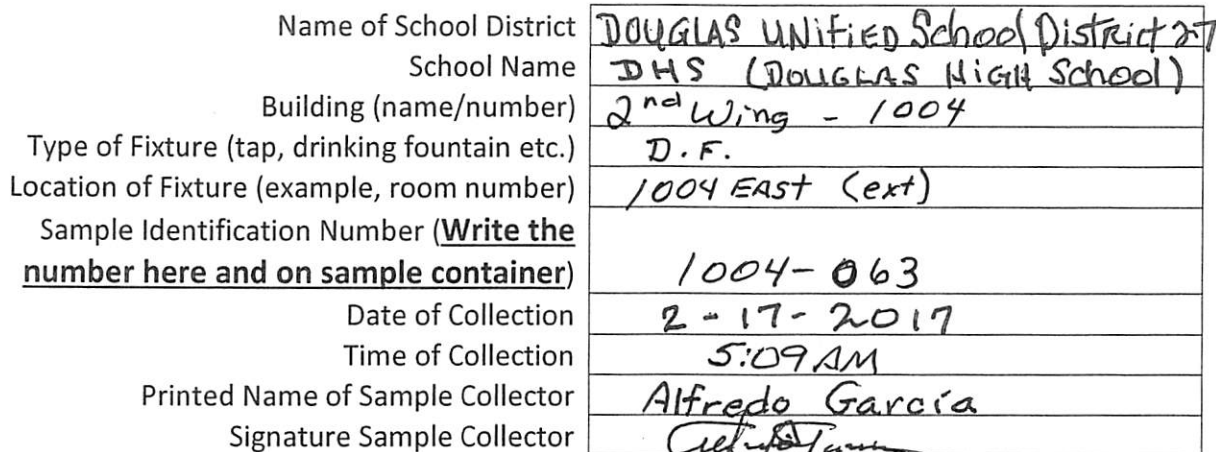 Name of School District DOUGLAS UNiFiED School District 27
School Name DHS (DOUGLAS HiGH School)
Building (name/number) 2nd Wing - 1004
Type of Fixture (tap, drinking fountain etc.) D.F.
Location of Fixture (example, room number) 1004 EASt (ext)
Sample Identification Number (Write the
number here and on sample container) 1004-063
Date of Collection 2-17-2017
Time of Collection 5:09 AM
Printed Name of Sample Collector Alfredo García
Signature Sample Collector